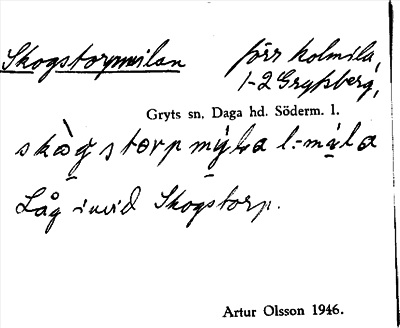 Skogstorpmilan förr kolmila,
1-2 Grytsberg,
Gryts sn. Daga hd. Söderm. l.
skògstorpmýla l.-mỳla
Låg invid Skogstorp.
Artur Olsson 1946.